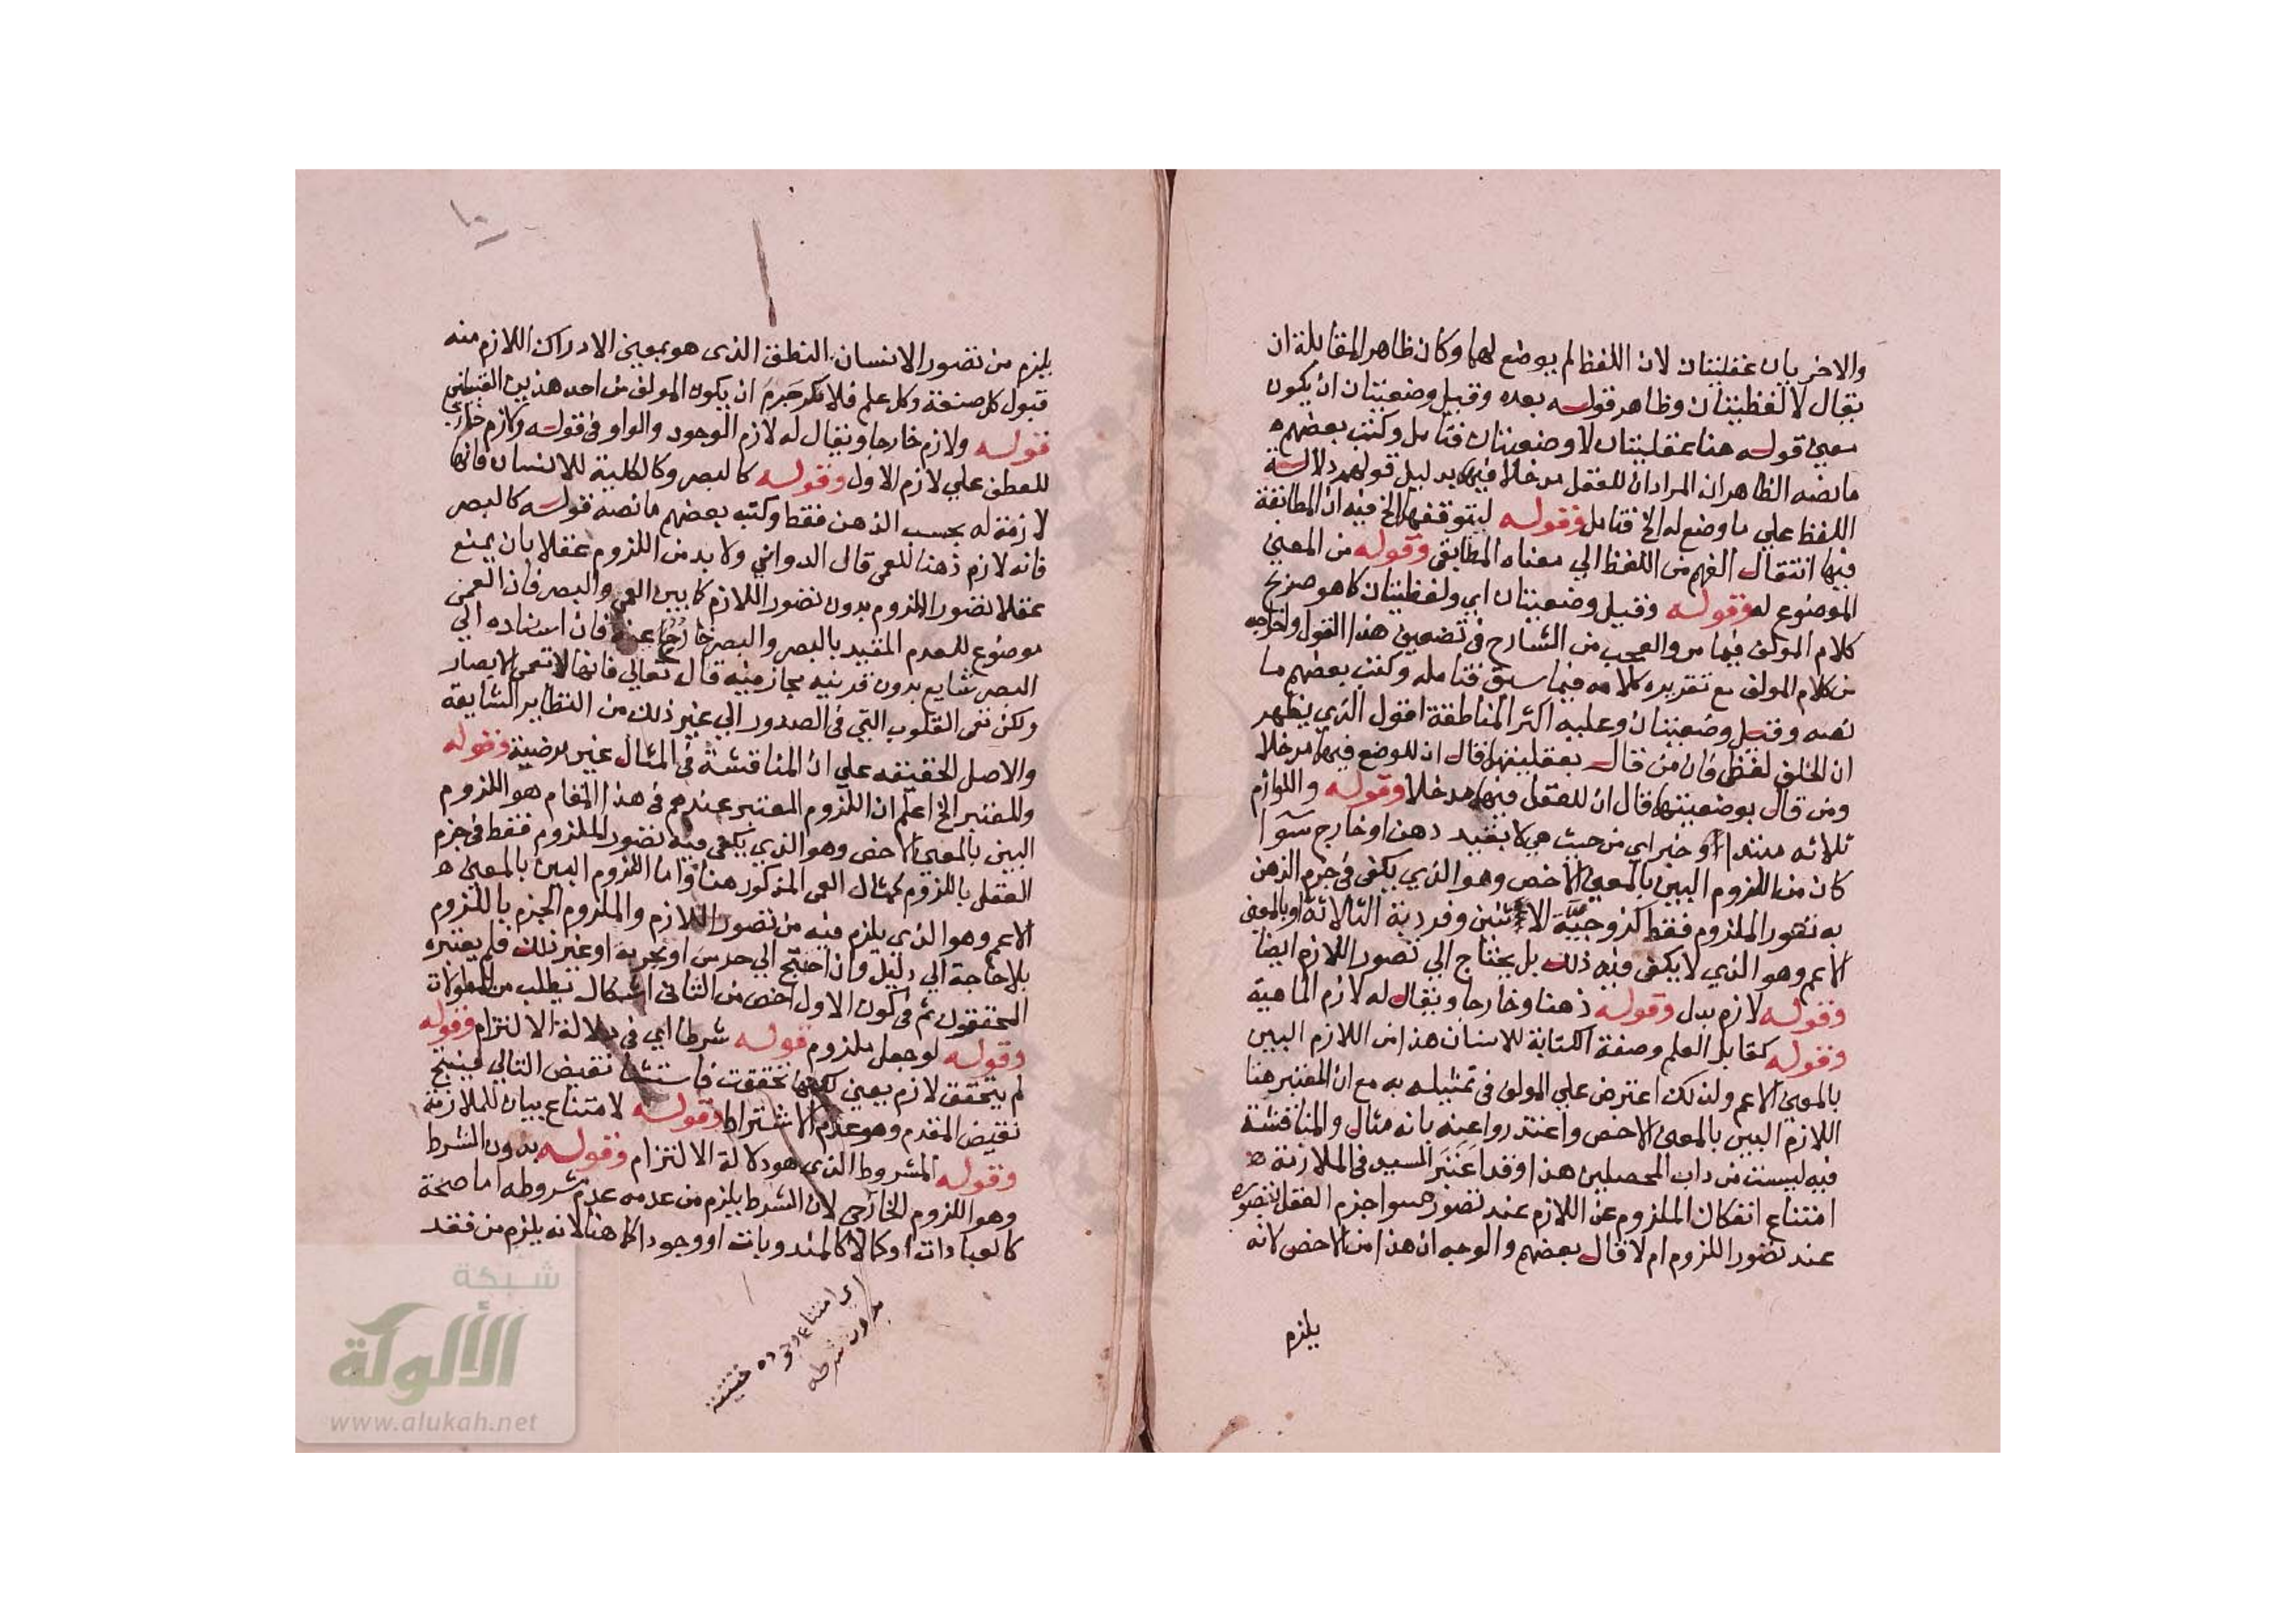 والاخريان عقليتان لان اللفظ لم يوضع لهما وكان ظاهر المقابلة ان
يقال لا لفظيتان وظاهر قوله بعده وقيل وضعيتان ان يكون
معني قوله هنا عقليتان لا وضعيتان فتامل وكتب بعضهم
ما نصه الظاهر ان المراد ان للعقل مدخلا فيها بدليل قولهم دلالة
اللفظ علي ما وضع له الخ فتامل وقوله لتوقفهما الخ فيه ان المطابقة
فيها انتقال الفهم من اللفظ الي معناه المطابقي وقوله من المعني
الموضوع له وقوله وقيل وضعيتان اي ولفظيتان كما هو صريح
كلام المولف فيما مر والعجب من الشارح في تضعيف هذا القول واخراجه
من كلام المولف مع تقريره كلامه فيما سبق فتامله وكتب بعضهم ما
نصه وقيل وضعيتان وعليه اكثر المناطقة اقول الذي يظهر
ان الخلف لفظي فان من قال بعقليتهما قال ان للوضع فيهما مدخلا
ومن قال بوضعيتهما قال ان للعقل فيهما مدخلا وقوله واللوازم
ثلاثه مبتدا وخبر اي من حيث هي لا بقيد ذهن او خارج سوا
كان من اللزوم البين بالمعني الاخص وهو الذي يكفي في جزم الذهن
به تصور الملزوم فقط كزوجية الاثنين وفردية الثلاثة او بالمعني
الاعم وهو الذي لا يكفي فيه ذلك بل يحتاج الي تصور اللازم ايضا
وقوله لازم بدل وقوله ذهنا وخارجا ويقال له لازم الماهية
وقوله كقابل العلم وصنعة الكتابة للانسان هذا من اللازم البين
بالمعني الاعم ولذلك اعترض علي المولف في تمثيله به مع ان المعتبر هنا
اللازم البين بالمعني الاخص واعتذروا عنه بانه مثال والمناقشة
فيه ليست من داب المحصلين هذا وقد اعتبر السيد في الملازمة
امتناع انفكاك الملزوم عن اللازم عند تصور سوا جزم العقل بتصوره
عند تصور اللزوم ام لا قال بعضهم والوجه ان هذا من الاخص لانه
يلزم
يلزم من تصور الانسان النطق الذي هو بمعني الادراك اللازم منه
قبول كل صنعة وكل علم فلا جرم ان يكون المولف من احد هذين القسمين
قوله ولازم خارجا ويقال له لازم الوجود والواو في قوله ولازم خارجا
للعطف علي لازم الاول وقوله كالبصر وكالكلية للانسان فانها
لازمة له بحسب الذهن فقط وكتب بعضهم ما نصه قوله كالبصر
فانه لازم ذهنا للعمى قال الدواني ولا بد من اللزوم عقلا بان يمتنع
عقلا تصور الملزوم بدون تصور اللازم كما بين العمى والبصر فان العمى
موضوع للعدم المقيد بالبصر والبصر خارج عنه فان اسناده الي
البصر شايع بدون قرينيه مجاز منيه قال تعالي فانها لا تعمى الابصار
ولكن تعمى القلوب التي في الصدور الي غير ذلك من النظاير الشايعة
والاصل الحقيقه علي ان المناقشة في المثال غير مرضية وقوله
والمعتبر الخ اعلم ان اللزوم المعتبر عندهم في هذا المقام هو اللزوم
البين بالمعني الاخص وهو الذي يكفي فيه تصور الملزوم فقط في جزم
العقل باللزوم كمثال العمى المذكور هنا واما اللزوم البين بالمعني
الاعم وهو الذي يلزم فيه من تصور اللازم والملزوم الجزم باللزوم
بلا حاجة الي دليل وان احتيج الي حدس او تجربة او غير ذلك فلم يعتبره
المحققون ثم في كون الاول اخص من الثاني اشكال يطلب من المطولات
وقوله لو جعل ملزوم قوله شرطا اي في دلالة الالتزام وقوله
لم يتحقق لازم يعني لكنها تحققت فاستثنا نقيض التالي فينتج
نقيض المقدم وهو عدم الاشتراط وقوله لامتناع بيان للملازمة
وقوله المشروط الذي هو دلالة الالتزام وقوله بدون الشرط
وهو اللزوم الخارجي لان الشرط يلزم من عدمه عدم مشروطه اما صحة
كالعبادات او كمالا كالمندوبات او وجودا كما هنا لانه يلزم من فقد
اي امتناع وجوده حقيقة
بدون شرطه
شبكة
الألوكة
www.alukah.net